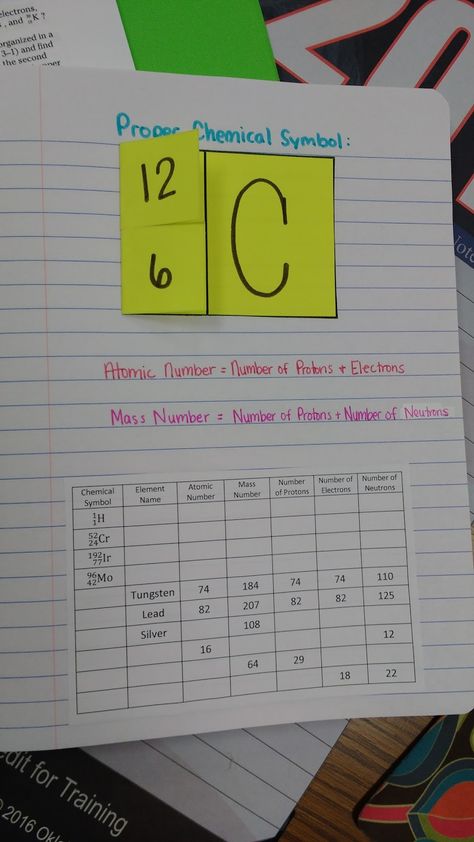 electrons,
, and K ?
organized in a
3–1) and find
the second
Proper Chemical Symbol:
12
C
6
Atomic Number = Number of Protons + Electrons
Mass Number = Number of Protons + Number of Neutrons
Chemical Symbol Element Name Atomic Number Mass Number Number of Protons Number of Electrons Number of Neutrons
¹₁H
⁵²₂₄Cr
¹⁹²₇₇Ir
⁹⁶₄₂Mo
Tungsten 74 184 74 74 110
Lead 82 207 82 82 125
Silver 108
16 12
64 29
18 22
edit for Training
2016